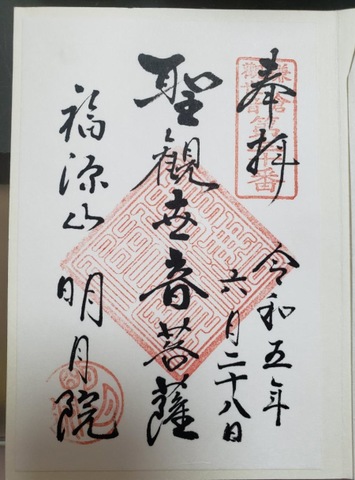 奉拝
令和五年
六月二十八日
聖観世音菩薩
福源山 明月院